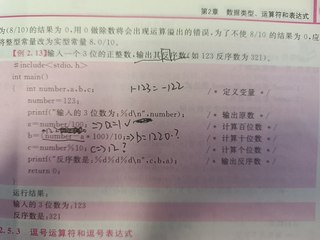 第2章 数据类型、运算符和表达式
为(8/10)的结果为0,用0做除数将会出现运算溢出的错误,为了不使8/10的结果为0,应
将整型常量改为实型常量8.0/10。
【例2.13】输入一个3位的正整数,输出其反序数(如123反序数为321)。
#include<stdio.h>
int main()
{
int number,a,b,c; 1-123=-122 /* 定义变量 */
number=123;
printf("输入的3位数为:%d\n",number); /* 输出原数 */
a=number/100; =>a=1 /* 计算百位数 */
b= ×100)/10; =>b=1220? /* 计算十位数 */
c=number%10; c=>12? /* 计算个位数 */
printf("反序数是:%d%d%d\n",c,b,a); /* 输出反序数 */
return 0;
运行结果:
输入的3位数为:123
反序数是:321
2.5.3 逗号运算符和逗号表达式